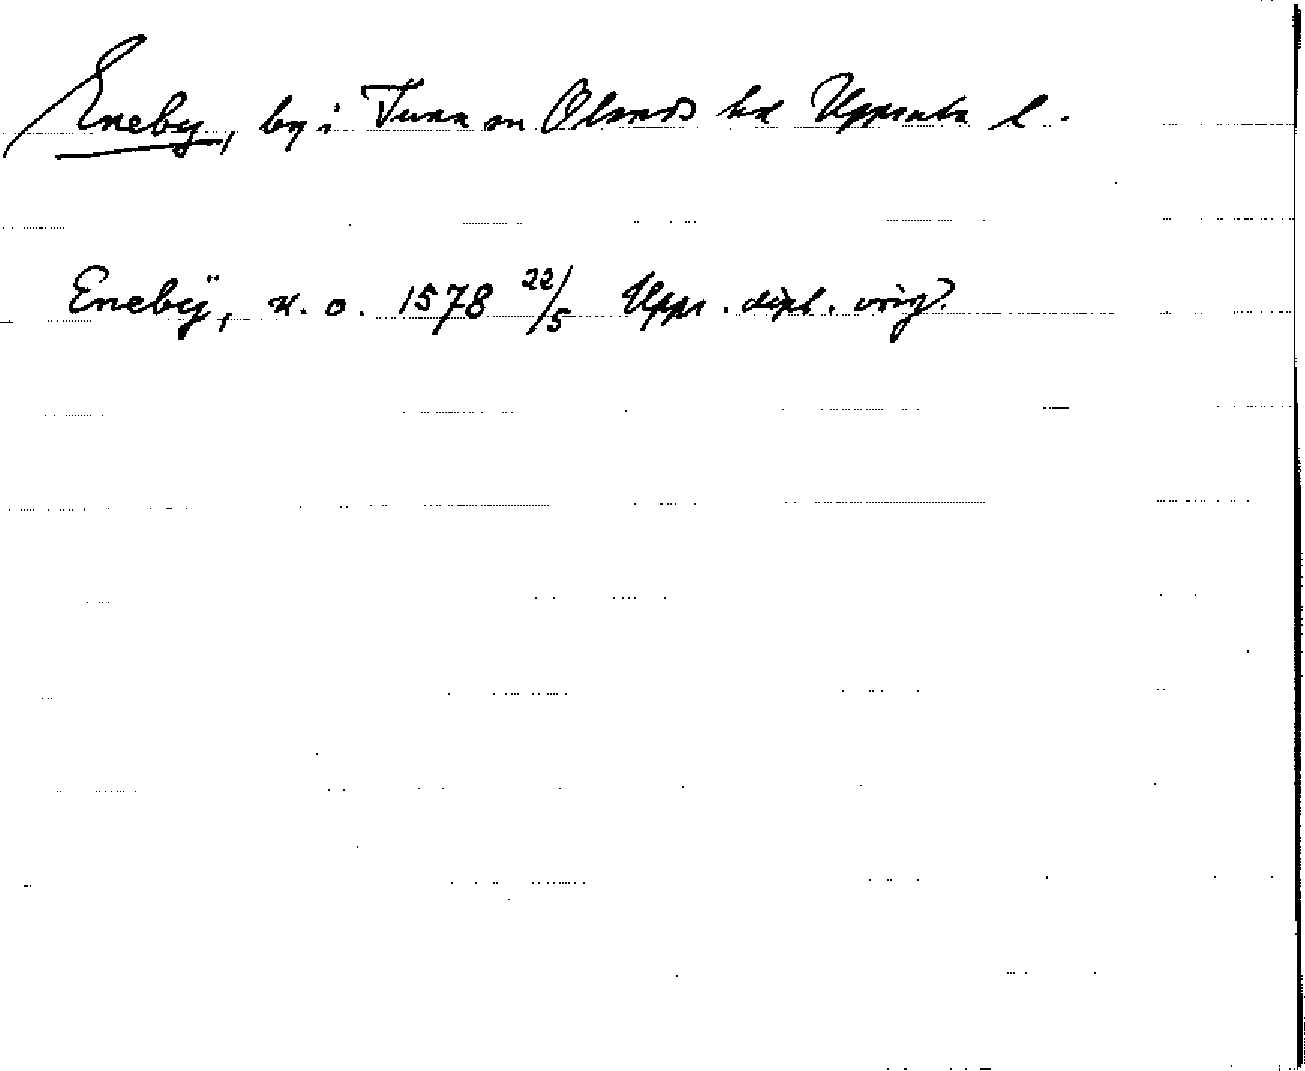 Eneby, by i Tuna sn Olands hd Uppsala l.
Enebÿ, n. o. 1578 22/5 Upps. dipl. orig.